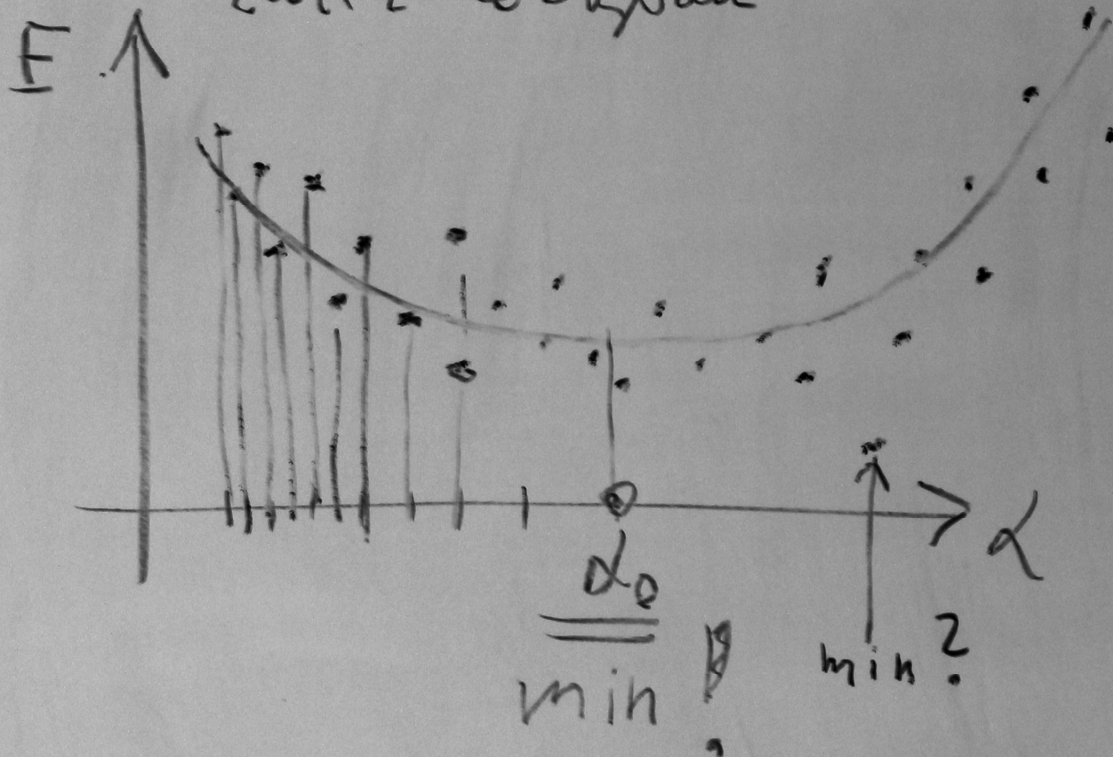 E
α
α₀
min !
min ?